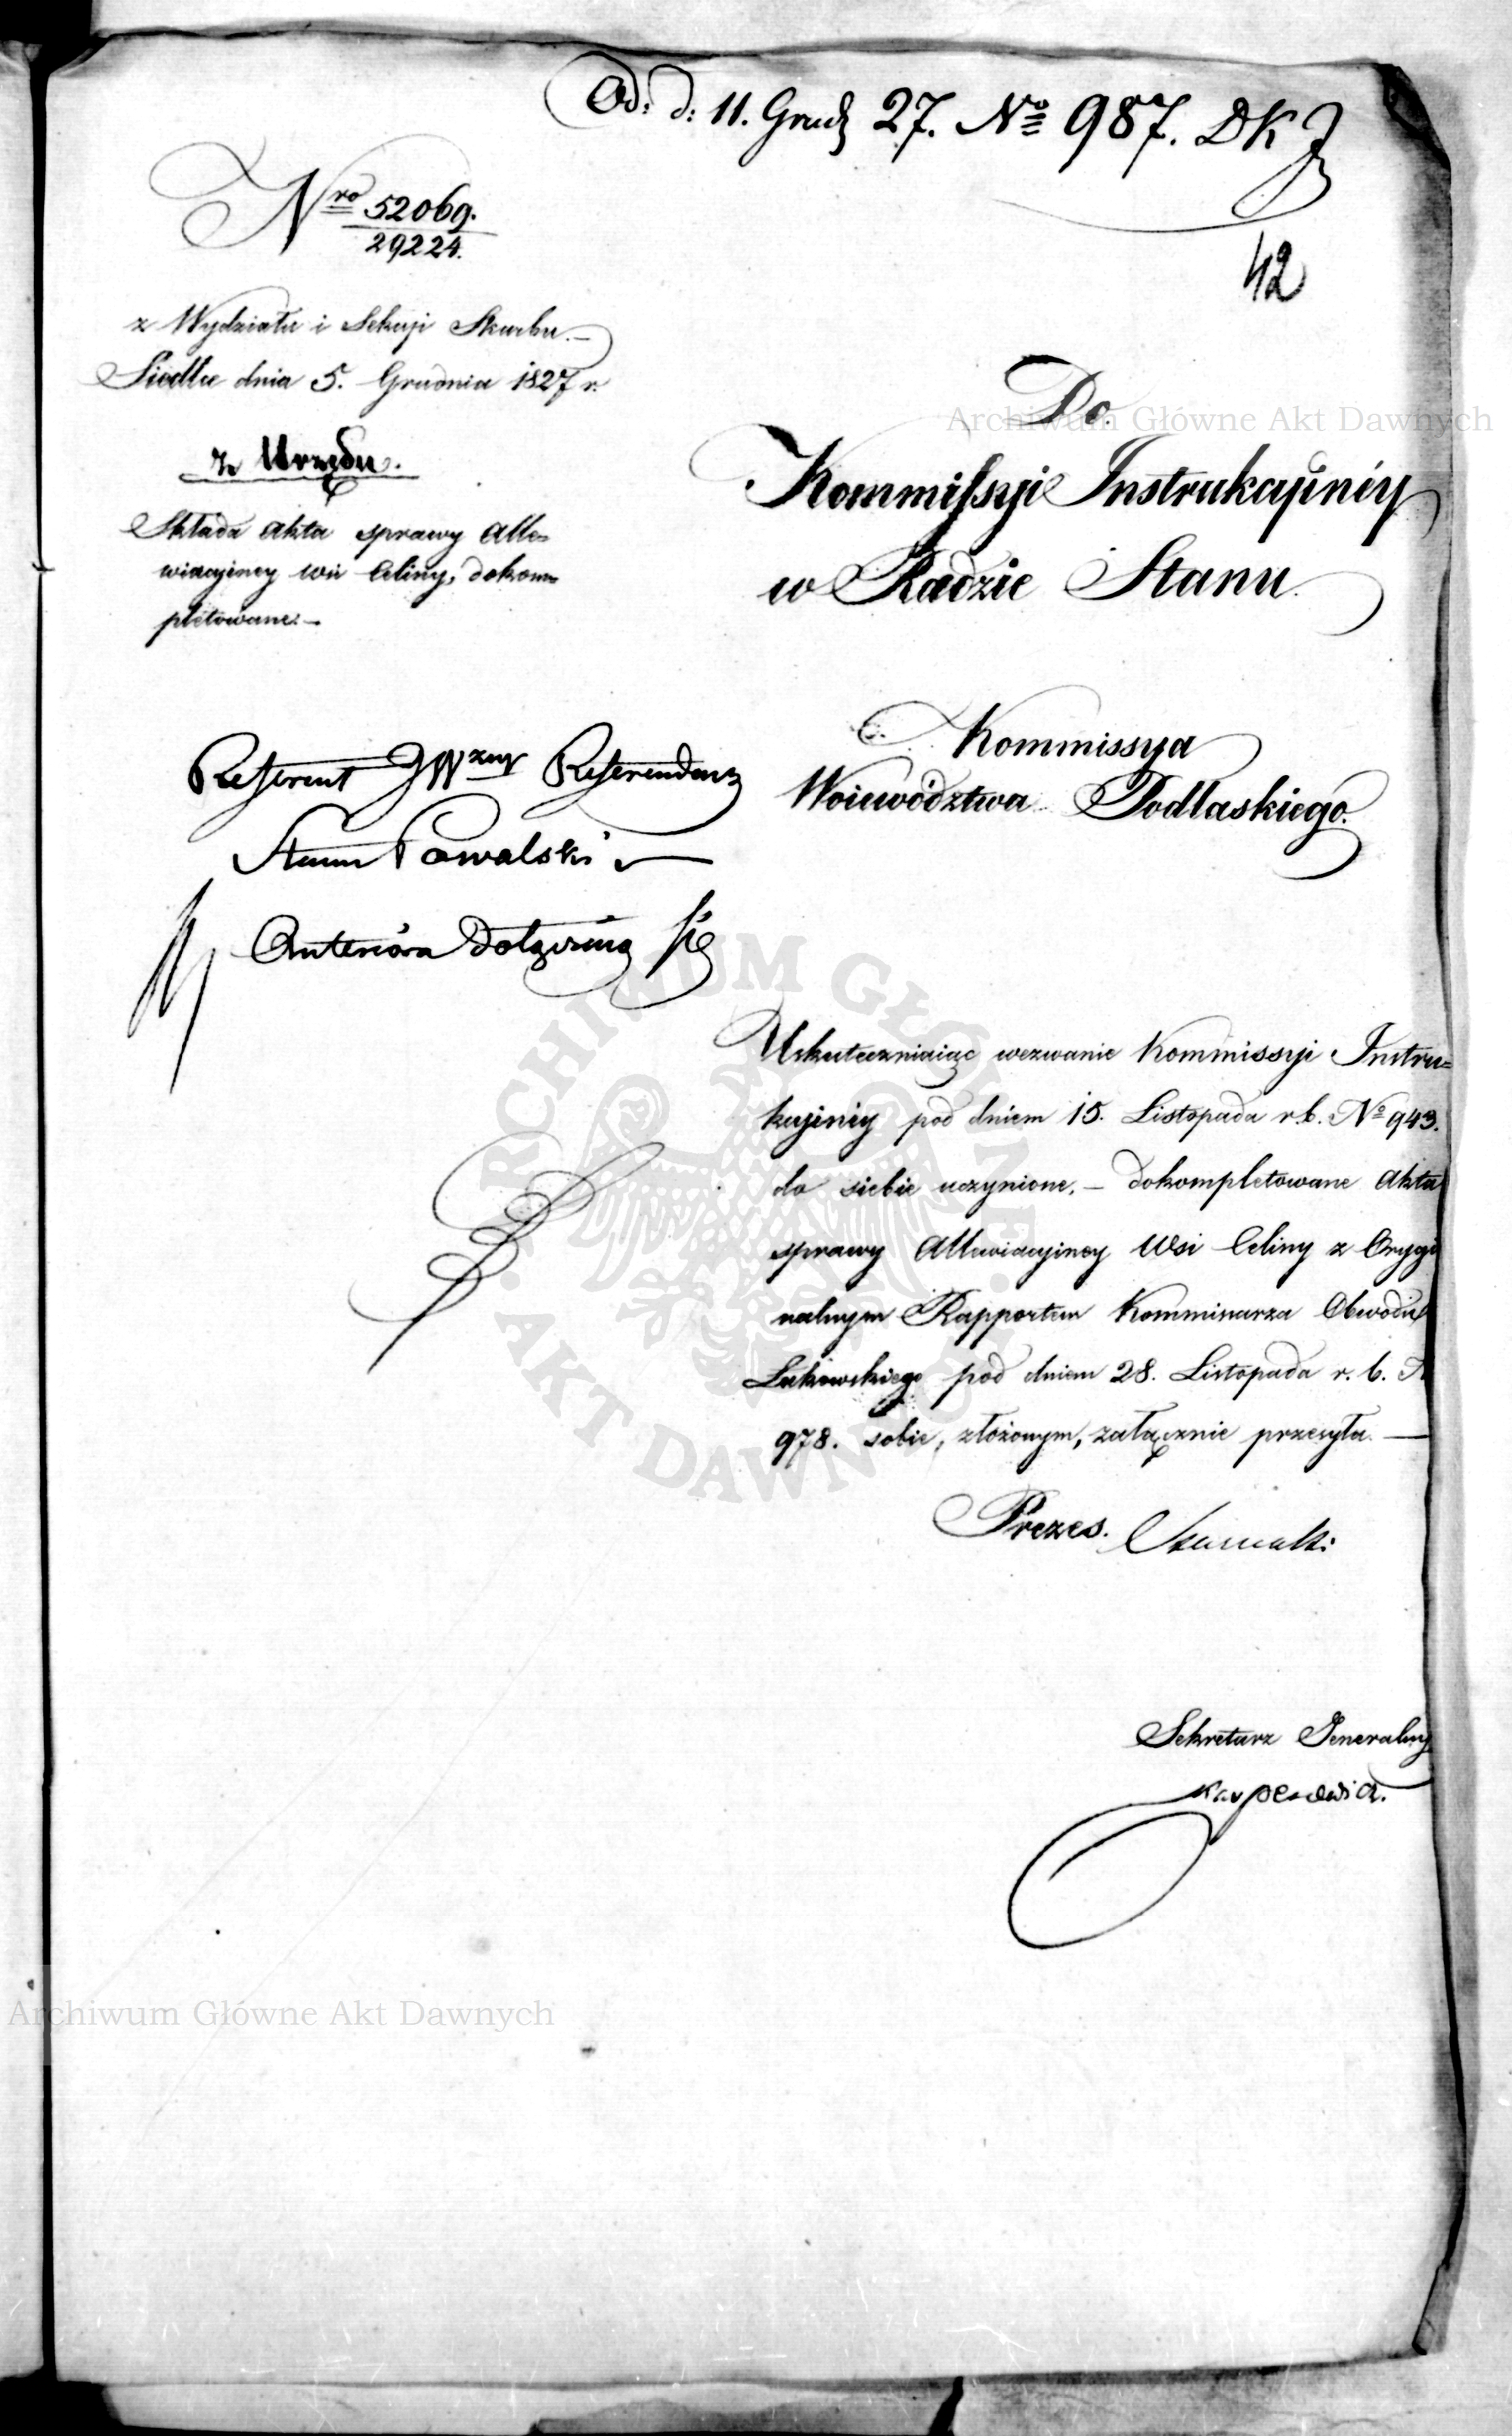 Od: d: 11. Grud 27. No 987. DK
42
Nro 52069.
29224.
z Wydziału i Sekcyi Skarbu.—
Siedlce dnia 5. Grudnia 1827 r.
z Urzędu.
Składa Akta sprawy Alle=
wiacyjney wsi Celiny, dokom=
pletowane.—
Do
Kommissyi Instrukcyiney
w Radzie Stanu.
Kommissya
Woiewództwa Podlaskiego.
Referent JW Referendarz
Stanu Kowalski
Anteriora dołączaią się
Uskuteczniaiąc wezwanie Kommissyi Instru=
kcyiney pod dniem 15. Listopada r.b. No 943.
do siebie uczynione.— dokompletowane Akta
sprawy Allewiacyiney Wsi Celiny z Orygi
nalnym Rapportem Kommissarza Obwodu
Łukowskiego pod dniem 28. Listopada r. b. N
978. sobie, złożonym, załącznie przesyła.—
Prezes.
Sekretarz Generalny
Archiwum Główne Akt Dawnych
ARCHIWUM GŁÓWNE AKT DAWNYCH
Archiwum Główne Akt Dawnych